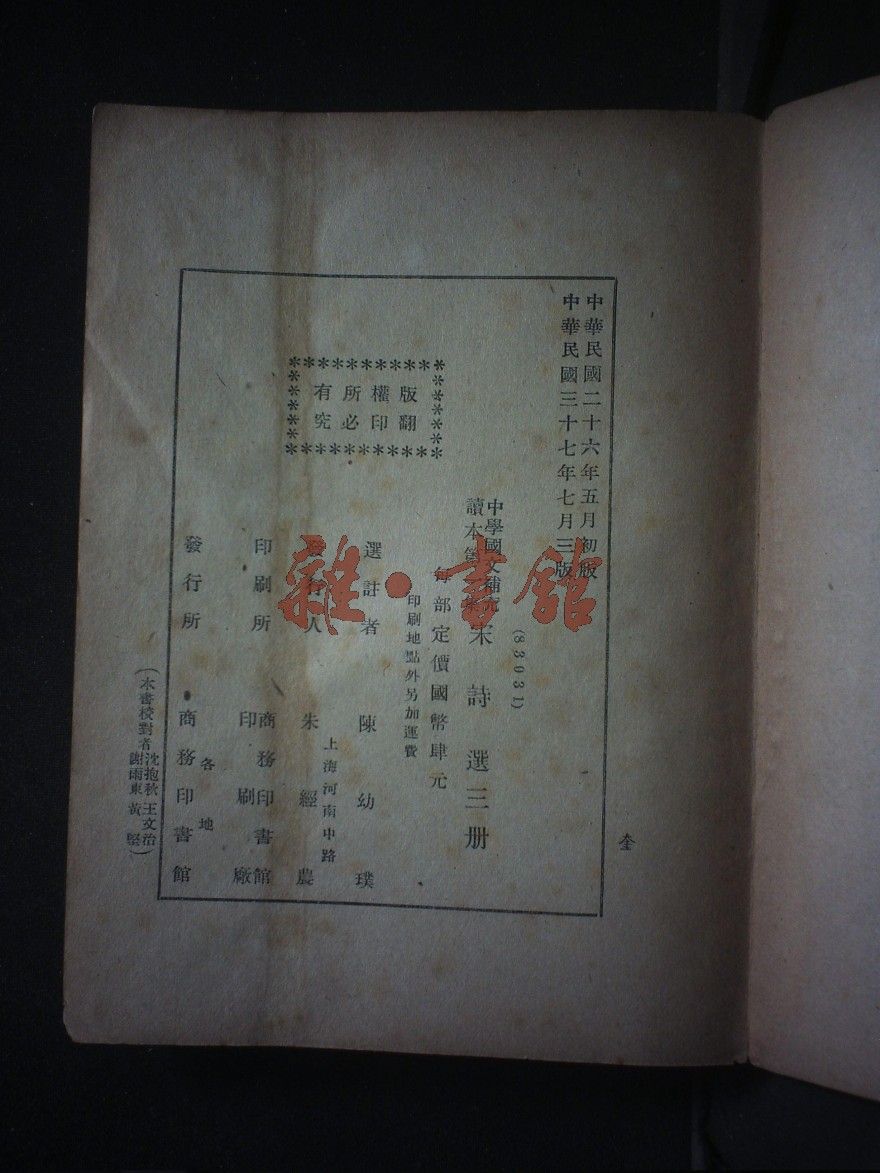 中華民國二十六年五月初版
中華民國三十七年七月三版
(83031)
中學國文補充
讀本第一集
宋詩選三册
每部定價國幣肆元
印刷地點外另加運費
版權所有
翻印必究
選註者 陳幼璞
發行人 朱經農
上海河南中路
印刷所 商務印書館
印刷廠
發行所 各地
商務印書館
(本書校對者 沈抱秋 王文治
謝雨東 黃堅)
雜·書館